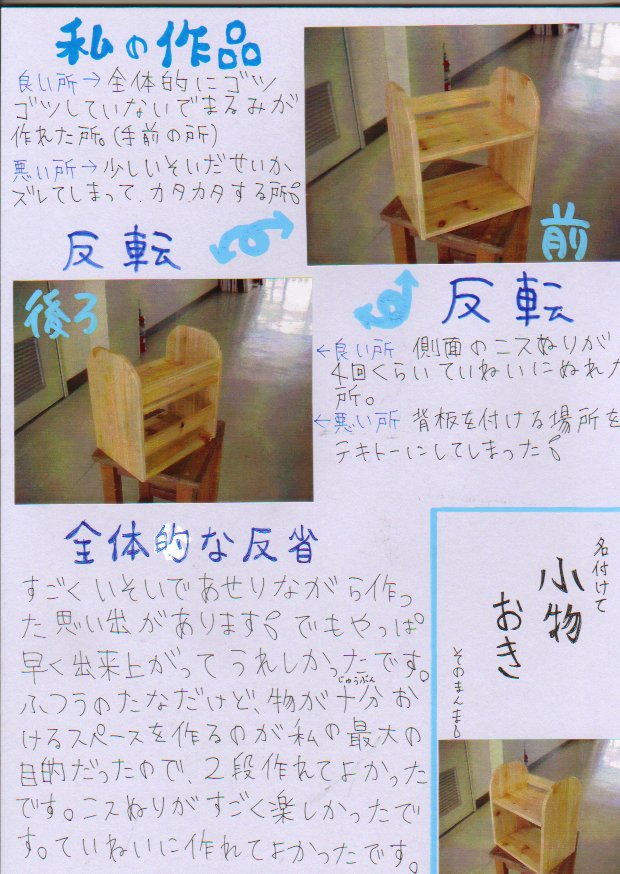 私の作品
良い所→全体的にゴツ
ゴツしていないでまるみが
作れた所。(手前の所)
悪い所→少しいそいだせいか
ズレてしまって、カタカタする所。
前
反転
後ろ
反転
←良い所 側面のニスぬりが
4回くらいていねいにぬれた
所。
←悪い所 背板を付ける場所を
テキトーにしてしまった。
全体的な反省
すごくいそいであせりながら作っ
た思い出があります。でもやっぱ
早く出来上がってうれしかったです。
ふつうのたなだけど、物が十分お
じゅうぶん
けるスペースを作るのが私の最大の
目的だったので、2段作れてよかった
です。ニスぬりがすごく楽しかったで
す。ていねいに作れてよかったです。
名付けて
小物
おき
そのまんま